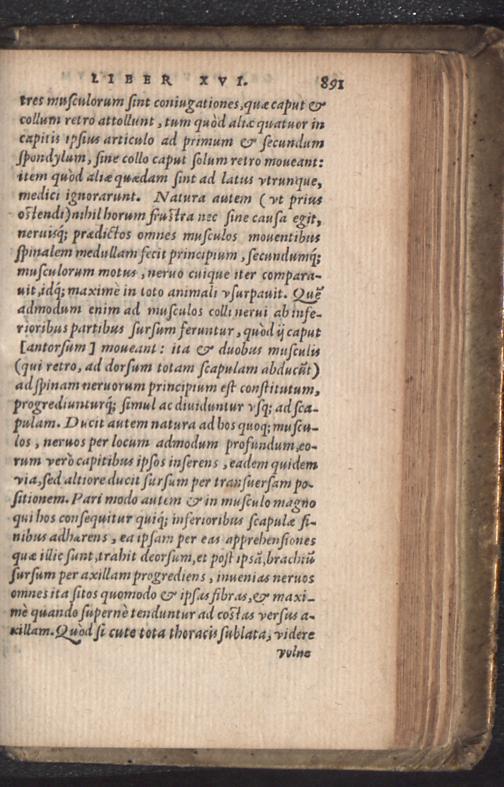 LIBER XVI. 891
tres musculorum sint coniugationes, quæ caput &
collum retro attollunt, tum quòd aliæ quatuor in
capitis ipsius articulo ad primum & secundum
spondylum, sine collo caput solum retro moueant:
item quòd aliæ quædam sint ad latus vtrunque,
medici ignorarunt. Natura autem (vt prius
ostendi) nihil horum frustra nec sine causa egit,
neruisq; prædictos omnes musculos mouentibus
spinalem medullam fecit principium, secundumq;
musculorum motus, neruo cuique iter compara-
uit, idq; maximè in toto animali vsurpauit. Quẽ
admodum enim ad musculos colli nerui ab infe-
rioribus partibus sursum feruntur, quòd ij caput
[antorsum] moueant: ita & duobus musculis
(qui retro, ad dorsum totam scapulam abducũt)
ad spinam neruorum principium est constitutum,
progrediunturq; simul ac diuiduntur vsq; ad sca-
pulam. Ducit autem natura ad hos quoq; muscu-
los, neruos per locum admodum profundum, eo-
rum verò capitibus ipsos inserens, eadem quidem
via, sed altiore ducit sursum per transuersam po-
sitionem. Pari modo autem & in musculo magno
qui hos consequitur quiq; inferioribus scapulæ fi-
nibus adhærens, ea ipsam per eas apprehensiones
quæ illic sunt, trahit deorsum, et post ipsã, brachiũ
sursum per axillam progrediens, inuenias neruos
omnes ita sitos quomodo & ipsas fibras, & maxi-
mè quando supernè tenduntur ad costas versus a-
xillam. Quòd si cute tota thoracis sublata, videre
volue